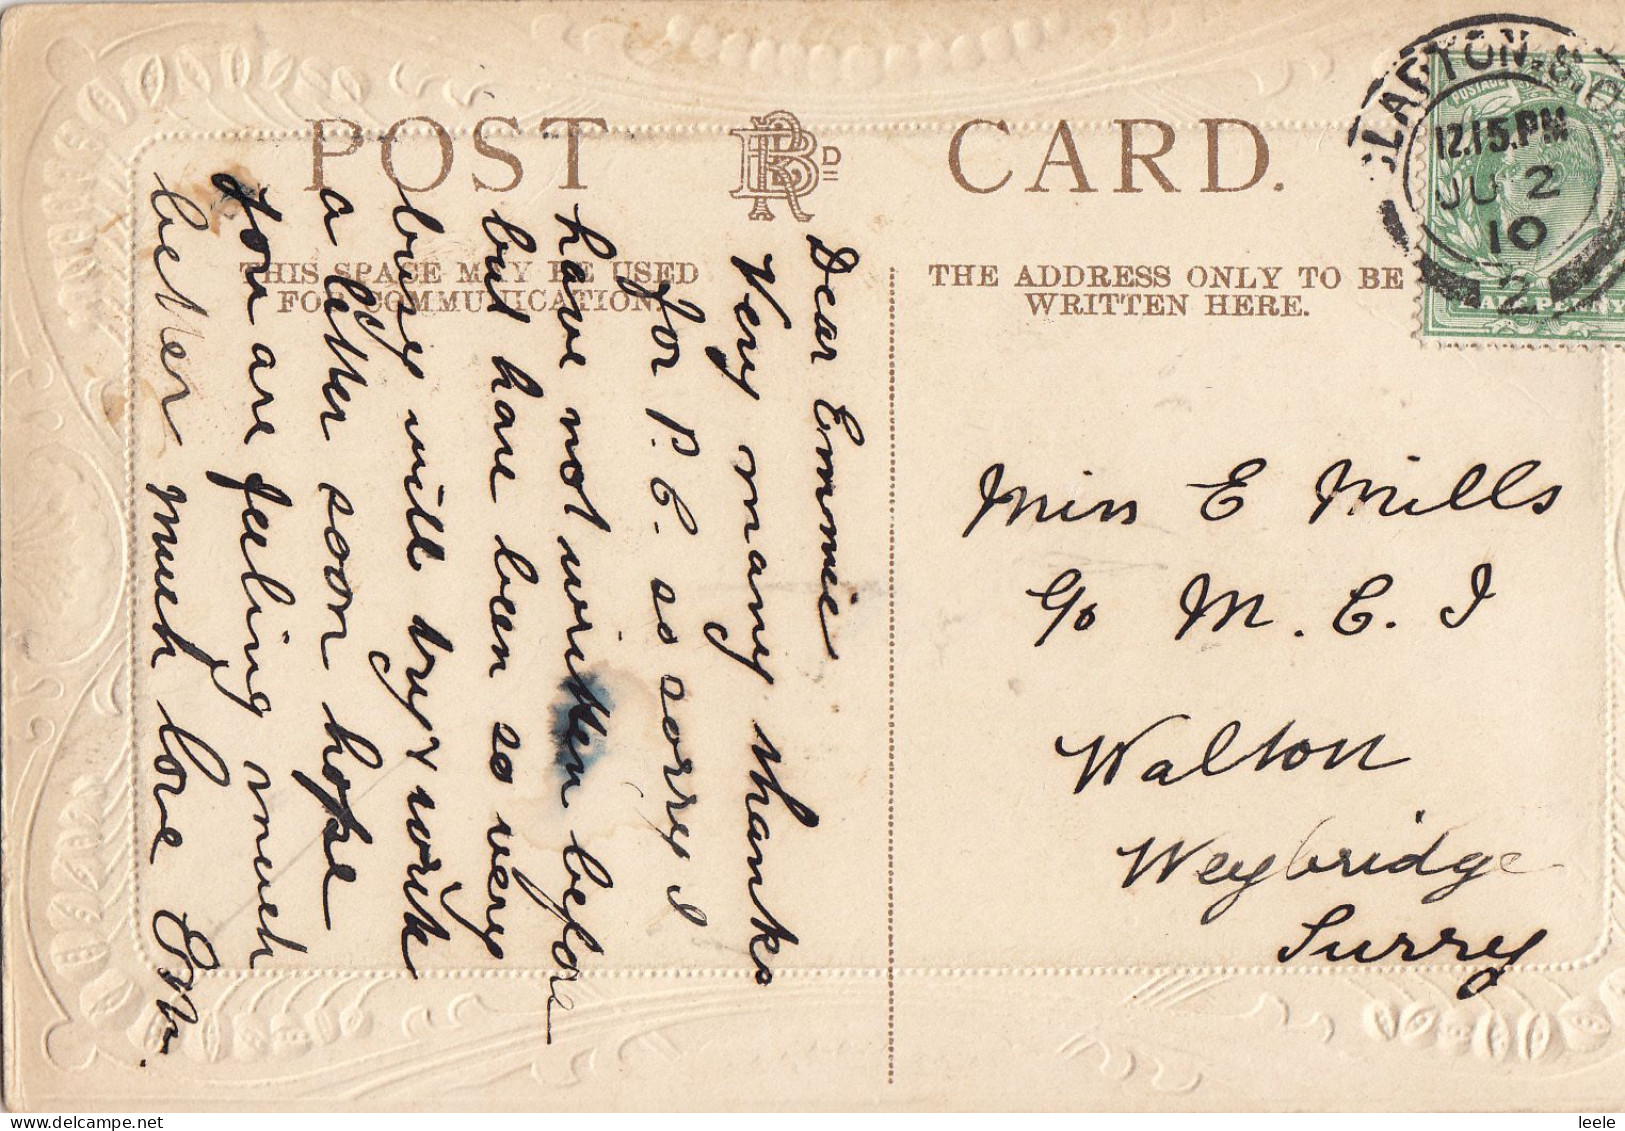 POST CARD.
THIS SPACE MAY BE USED
FOR COMMUNICATION.
THE ADDRESS ONLY TO BE
WRITTEN HERE.
CLAPTON.S.O
12.15.PM
JU 2
10
2
POSTAGE
HALFPENNY
Dear Emmie
Very many thanks
for P.C. as sorry I
have not written before
but have been so very
busy will try & write
a letter soon hope
you are feeling much
better much love Em.
Miss E Mills
c/o M. C. I
Walton
Weybridge
Surry
leele